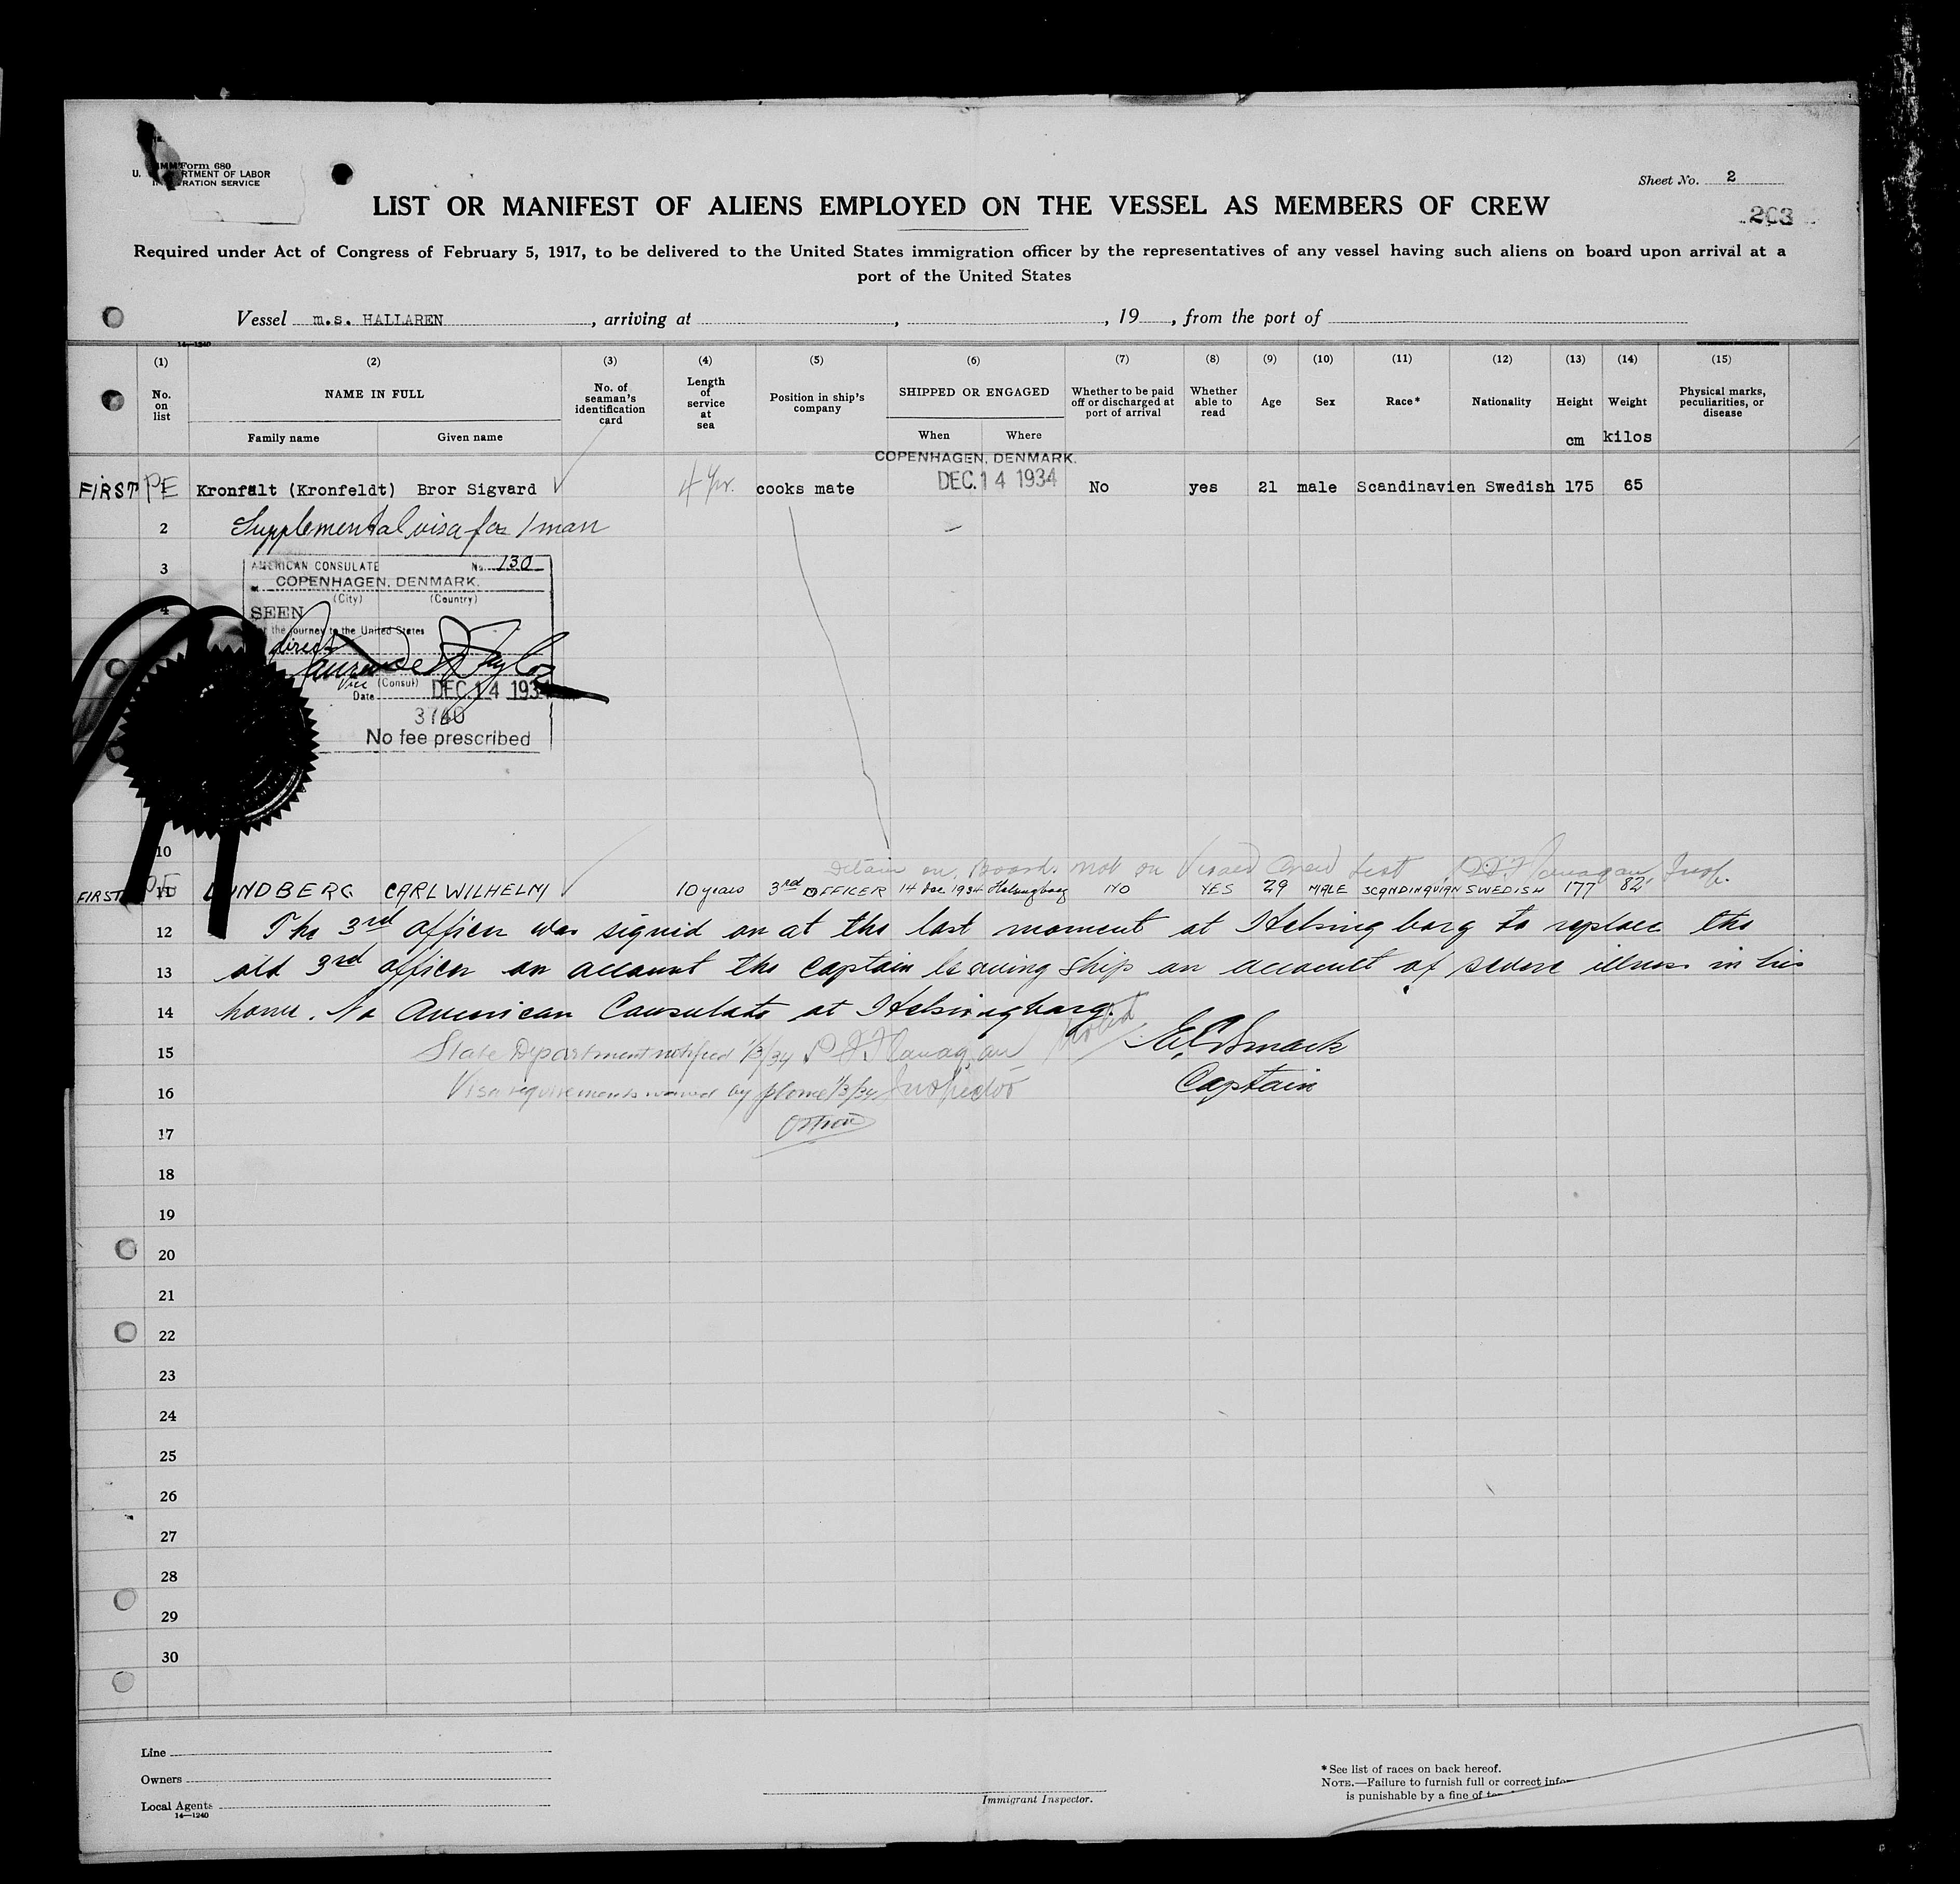 Form 680
U. RTMENT OF LABOR
RATION SERVICE
Sheet No. 2
LIST OR MANIFEST OF ALIENS EMPLOYED ON THE VESSEL AS MEMBERS OF CREW
203
Required under Act of Congress of February 5, 1917, to be delivered to the United States immigration officer by the representatives of any vessel having such aliens on board upon arrival at a
port of the United States
Vessel m.s. HALLAREN, arriving at , , 19 , from the port of
14—1240
(1) (2) (3) (4) (5) (6) (7) (8) (9) (10) (11) (12) (13) (14) (15)
No. on list NAME IN FULL No. of seaman's identification card Length of service at sea Position in ship's company SHIPPED OR ENGAGED Whether to be paid off or discharged at port of arrival Whether able to read Age Sex Race* Nationality Height Weight Physical marks, peculiarities, or disease
Family name Given name When Where cm kilos
COPENHAGEN, DENMARK.
FIRST PE Kronfalt (Kronfeldt) Bror Sigvard 4 yr. cooks mate DEC. 14 1934 No yes 21 male Scandinavien Swedish 175 65
2 Supplemental visa for 1 man
3 AMERICAN CONSULATE No. 130
COPENHAGEN, DENMARK.
(City) (Country)
4 SEEN
the journey to the United States
direct
Vice (Consul)
Date DEC. 14 1934
3740
No fee prescribed
10
Detain on Board. Not on Visaed Crew List. Flanagan, Insp.
FIRST PE 11 LUNDBERG CARL WILHELM 10 years 3rd OFFICER 14 Dec 1934 Helsingborg NO YES 29 MALE SCANDINAVIAN SWEDISH 177 82
12 The 3rd officer was signed on at the last moment at Helsingborg to replace the
13 old 3rd officer on account the captain leaving ship on account of severe illness in his
14 home. No American Consulate at Helsingborg.
15 State Department notified 1/3/34 Flanagan
16 Visa requirements waived by phone 1/3/34 Inspector
Captain
17
18
19
20
21
22
23
24
25
26
27
28
29
30
Line
Owners
Local Agents
14—1240
Immigrant Inspector.
*See list of races on back hereof.
NOTE.—Failure to furnish full or correct
is punishable by a fine of